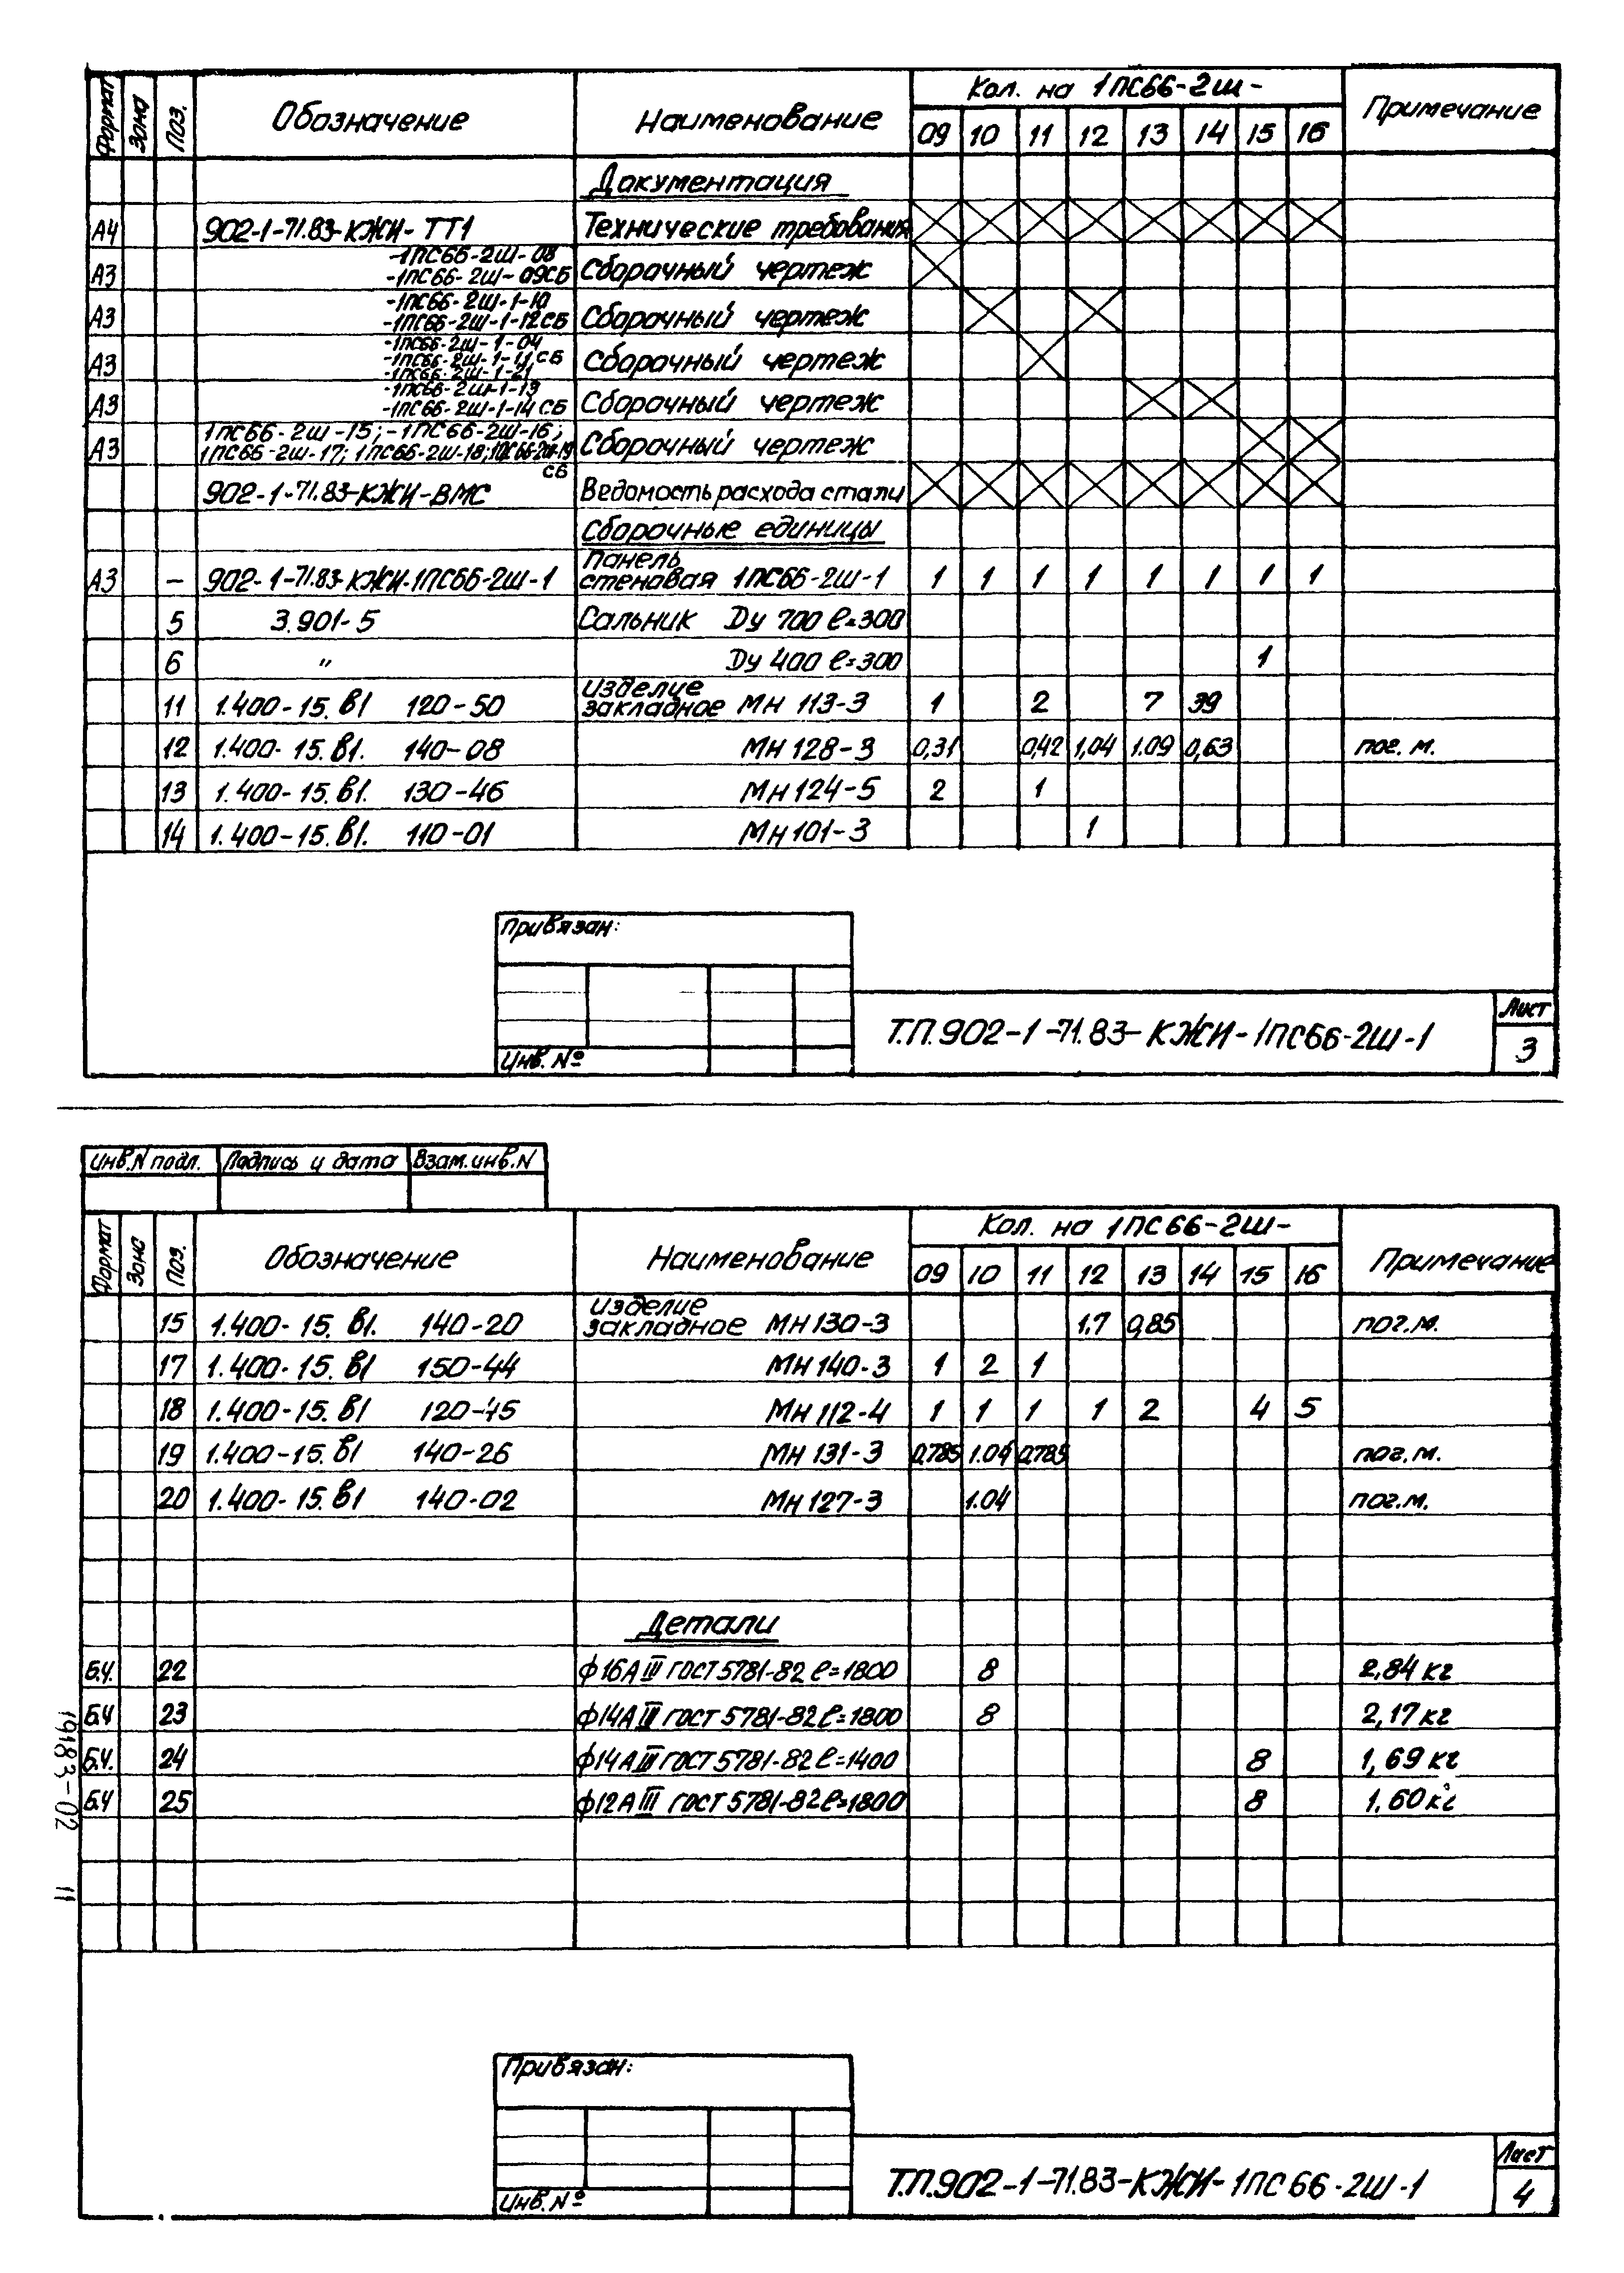 Формат Зона Поз. Обозначение Наименование Кол. на 1ПС66-2Ш- Примечание
09 10 11 12 13 14 15 16
Документация
А4 902-1-71.83-КЖИ-ТТ1 Технические требования
-1ПС66-2Ш-08
А3 -1ПС66-2Ш-09СБ Сборочный чертеж
-1ПС66-2Ш-1-10
А3 -1ПС66-2Ш-1-12СБ Сборочный чертеж
-1ПС66-2Ш-1-04
А3 -1ПС66-2Ш-1-11СБ Сборочный чертеж
-1ПС66-2Ш-1-21
-1ПС66-2Ш-1-13
А3 -1ПС66-2Ш-1-14СБ Сборочный чертеж
1ПС66-2Ш-15; -1ПС66-2Ш-16;
А3 1ПС66-2Ш-17; 1ПС66-2Ш-18; 1ПС66-2Ш-19 Сборочный чертеж
СБ
902-1-71.83-КЖИ-ВМС Ведомость расхода стали
Сборочные единицы
Панель
А3 — 902-1-71.83-КЖИ-1ПС66-2Ш-1 стеновая 1ПС66-2Ш-1 1 1 1 1 1 1 1 1
5 3.901-5 Сальник Ду 700 ℓ=300
6 " Ду 400 ℓ=300 1
Изделие
11 1.400-15.В1 120-50 закладное МН 113-3 1 2 7 39
12 1.400-15.В1. 140-08 МН 128-3 0,31 0,42 1,04 1.09 0,63 пог. м.
13 1.400-15.В1. 130-46 МН 124-5 2 1
14 1.400-15.В1. 110-01 МН 101-3 1
Привязан:
Инв. №
Т.П.902-1-71.83-КЖИ-1ПС66-2Ш-1
Лист
3
Инв.N подл. Подпись и дата Взам.инв.N
Формат Зона Поз. Обозначение Наименование Кол. на 1ПС66-2Ш- Примечание
09 10 11 12 13 14 15 16
Изделие
15 1.400-15.В1. 140-20 закладное МН 130-3 1.7 0,85 пог.м.
17 1.400-15.В1 150-44 МН 140-3 1 2 1
18 1.400-15.В1 120-45 МН 112-4 1 1 1 1 2 4 5
19 1.400-15.В1 140-26 МН 131-3 0.785 1.04 0.785 пог.м.
20 1.400-15.В1 140-02 МН 127-3 1.04 пог.м.
Детали
Б.Ч. 22 ф16АIII ГОСТ 5781-82 ℓ=1800 8 2,84 кг
Б.Ч 23 ф14АIII ГОСТ 5781-82 ℓ=1800 8 2,17 кг
Б.Ч. 24 ф14АIII ГОСТ 5781-82 ℓ=1400 8 1,69 кг
Б.Ч 25 ф12АIII ГОСТ 5781-82 ℓ=1800 8 1.60 кг
19183-02 11
Привязан:
Инв. №
Т.П.902-1-71.83-КЖИ-1ПС66-2Ш-1
Лист
4